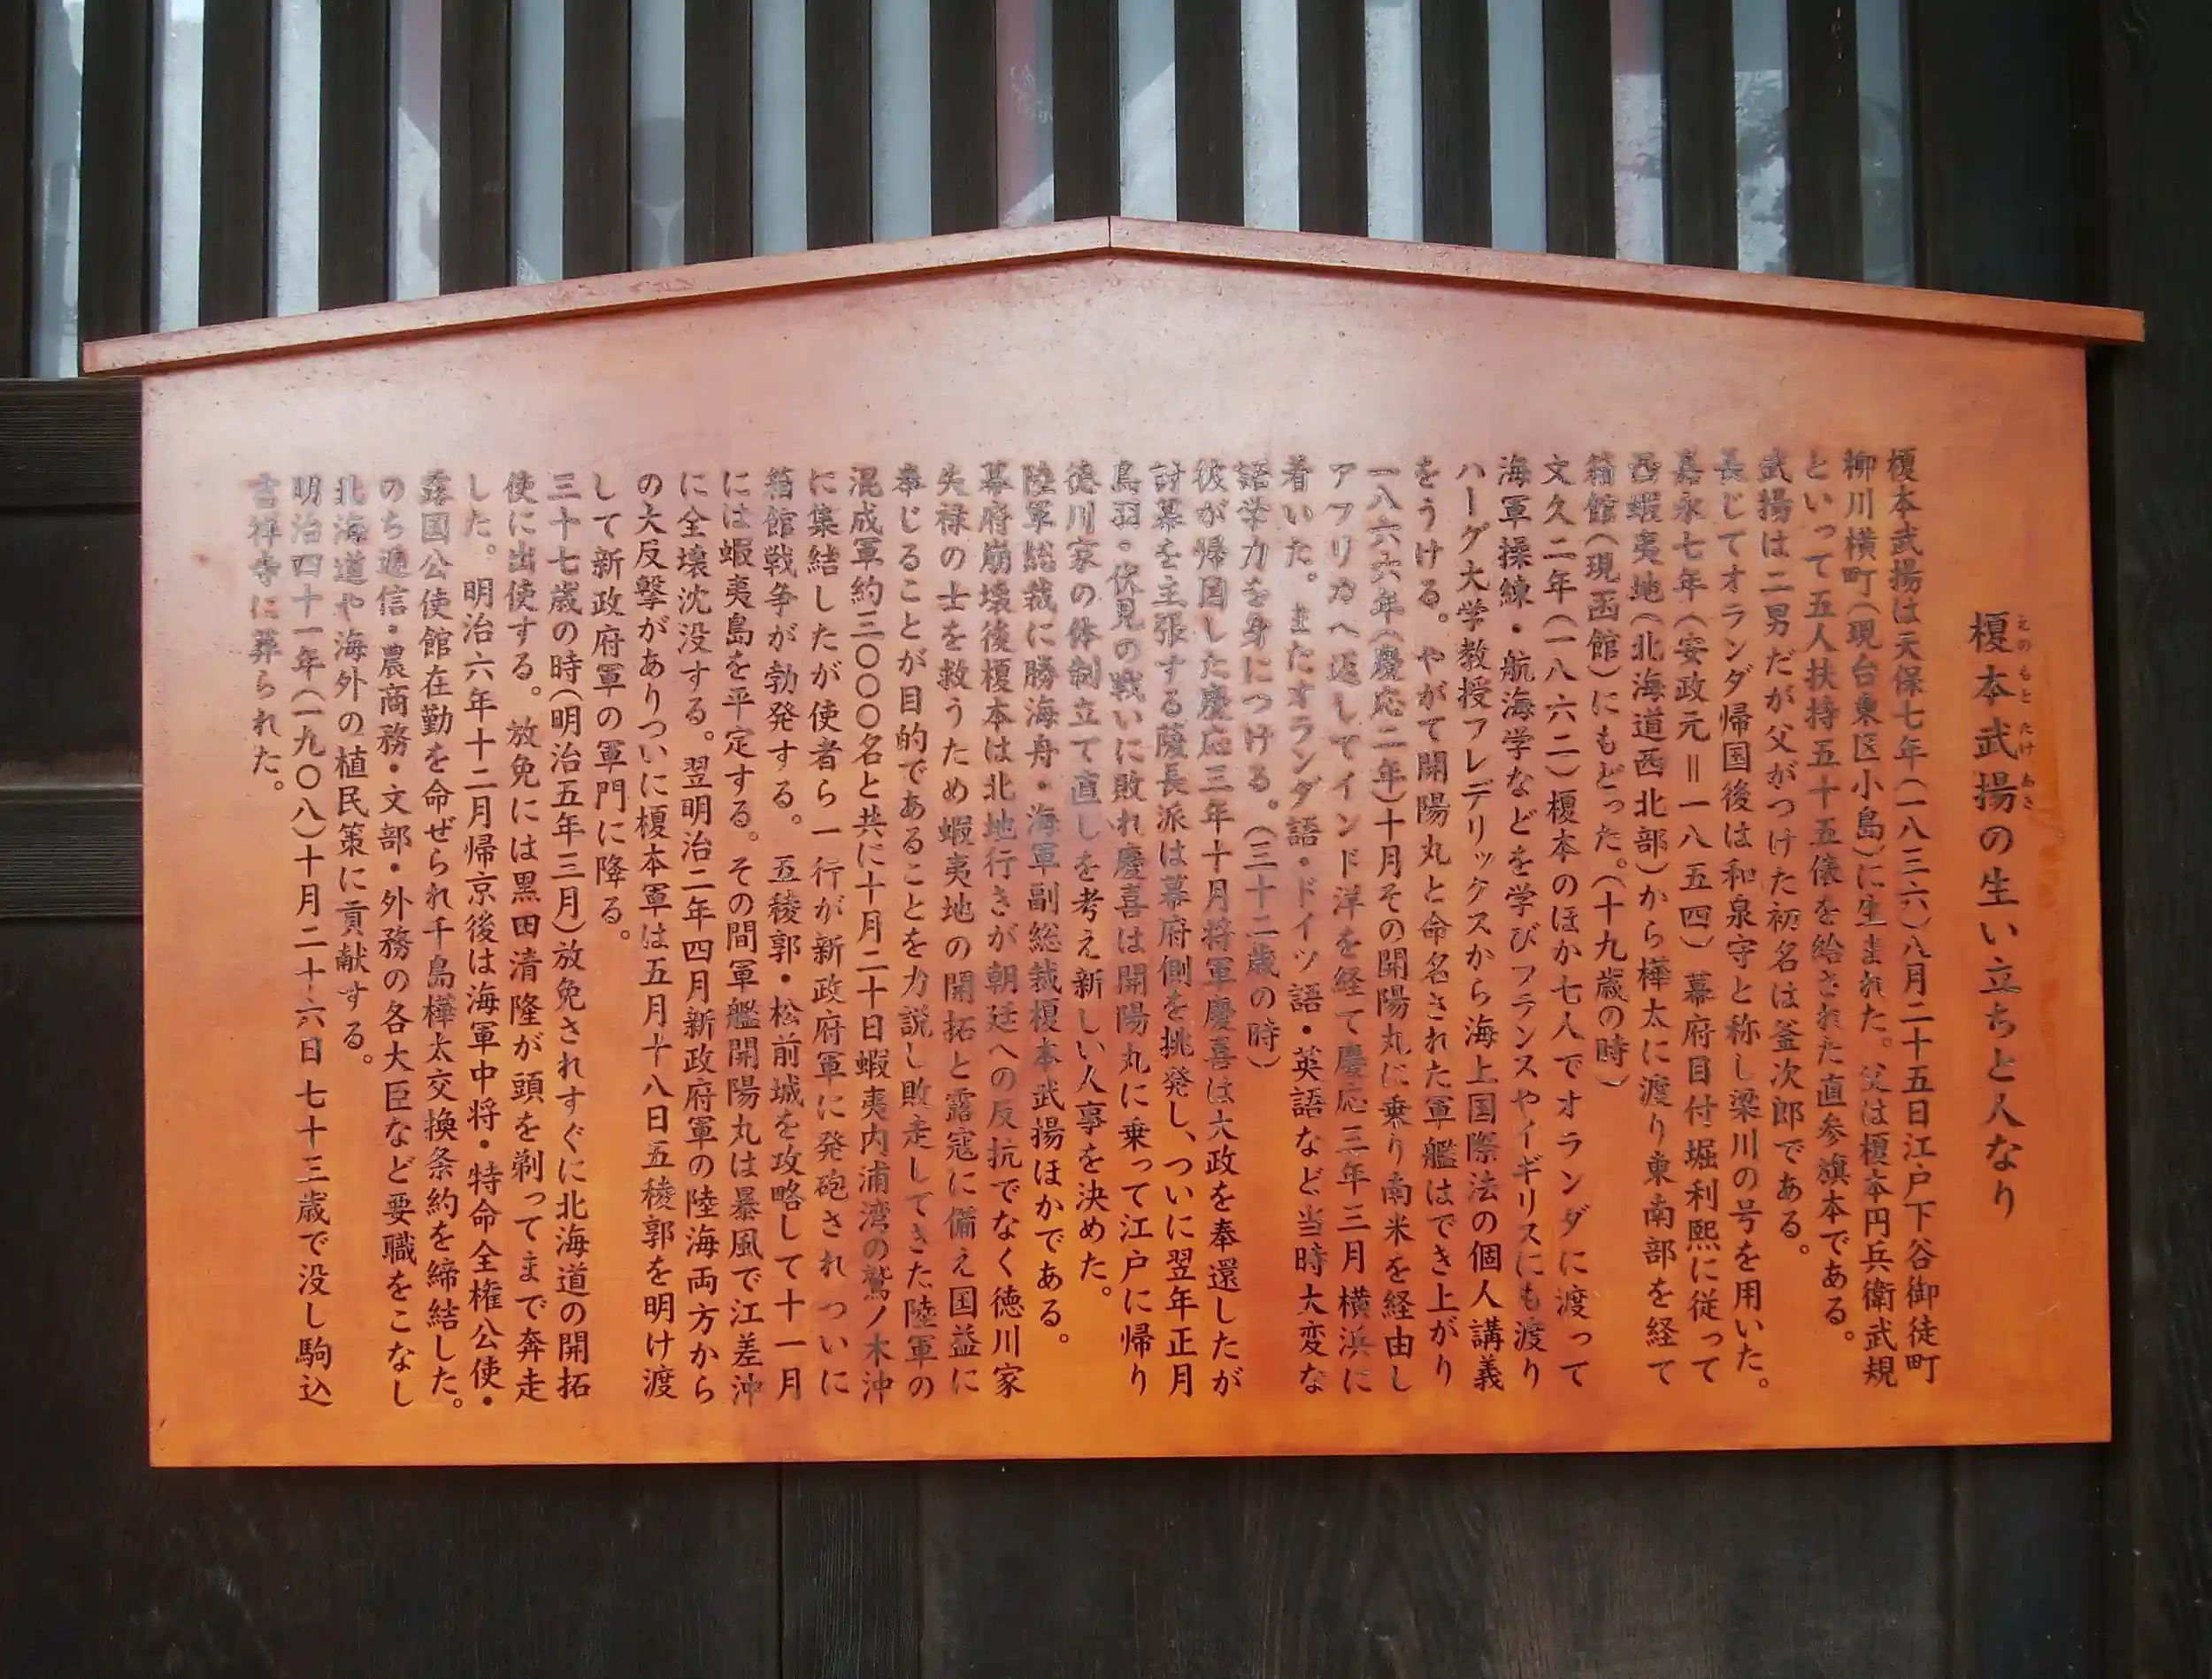 榎本武揚の生い立ちと人なり
えのもと たけ あき
榎本武揚は天保七年(一八三六)八月二十五日江戸下谷御徒町
柳川横町(現台東区小島)に生まれた。父は榎本円兵衛武規
といって五人扶持五十五俵を給された直参旗本である。
武揚は二男だが父がつけた初名は釜次郎である。
長じてオランダ帰国後は和泉守と称し梁川の号を用いた。
嘉永七年(安政元=一八五四)幕府目付堀利熙に従って
西蝦夷地(北海道西北部)から樺太に渡り東南部を経て
箱館(現函館)にもどった。(十九歳の時)
文久二年(一八六二)榎本のほか七人でオランダに渡って
海軍操練・航海学などを学びフランスやイギリスにも渡り
ハーグ大学教授フレデリックスから海上国際法の個人講義
をうける。やがて開陽丸と命名された軍艦はでき上がり
一八六六年(慶応二年)十月その開陽丸に乗り南米を経由し
アフリカへ返してインド洋を経て慶応三年三月横浜に
着いた。またオランダ語・ドイツ語・英語など当時大変な
語学力を身につける。(三十二歳の時)
彼が帰国した慶応三年十月将軍慶喜は大政を奉還したが
討幕を主張する薩長派は幕府側を挑発し、ついに翌年正月
鳥羽・伏見の戦いに敗れ慶喜は開陽丸に乗って江戸に帰り
徳川家の体制立て直しを考え新しい人事を決めた。
陸軍総裁に勝海舟・海軍副総裁榎本武揚ほかである。
幕府崩壊後榎本は北地行きが朝廷への反抗でなく徳川家
失禄の士を救うため蝦夷地の開拓と露寇に備え国益に
奉じることが目的であることを力説し敗走してきた陸軍の
混成軍約三〇〇〇名と共に十月二十日蝦夷内浦湾の鷲ノ木沖
に集結したが使者ら一行が新政府軍に発砲されついに
箱館戦争が勃発する。五稜郭・松前城を攻略して十一月
には蝦夷島を平定する。その間軍艦開陽丸は暴風で江差沖
に全壊沈没する。翌明治二年四月新政府軍の陸海両方から
の大反撃がありついに榎本軍は五月十八日五稜郭を明け渡
して新政府軍の軍門に降る。
三十七歳の時(明治五年三月)放免されすぐに北海道の開拓
使に出使する。放免には黒田清隆が頭を剃ってまで奔走
した。明治六年十二月帰京後は海軍中将・特命全権公使・
露国公使館在勤を命ぜられ千島樺太交換条約を締結した。
のち逓信・農商務・文部・外務の各大臣など要職をこなし
北海道や海外の植民策に貢献する。
明治四十一年(一九〇八)十月二十六日七十三歳で没し駒込
吉祥寺に葬られた。